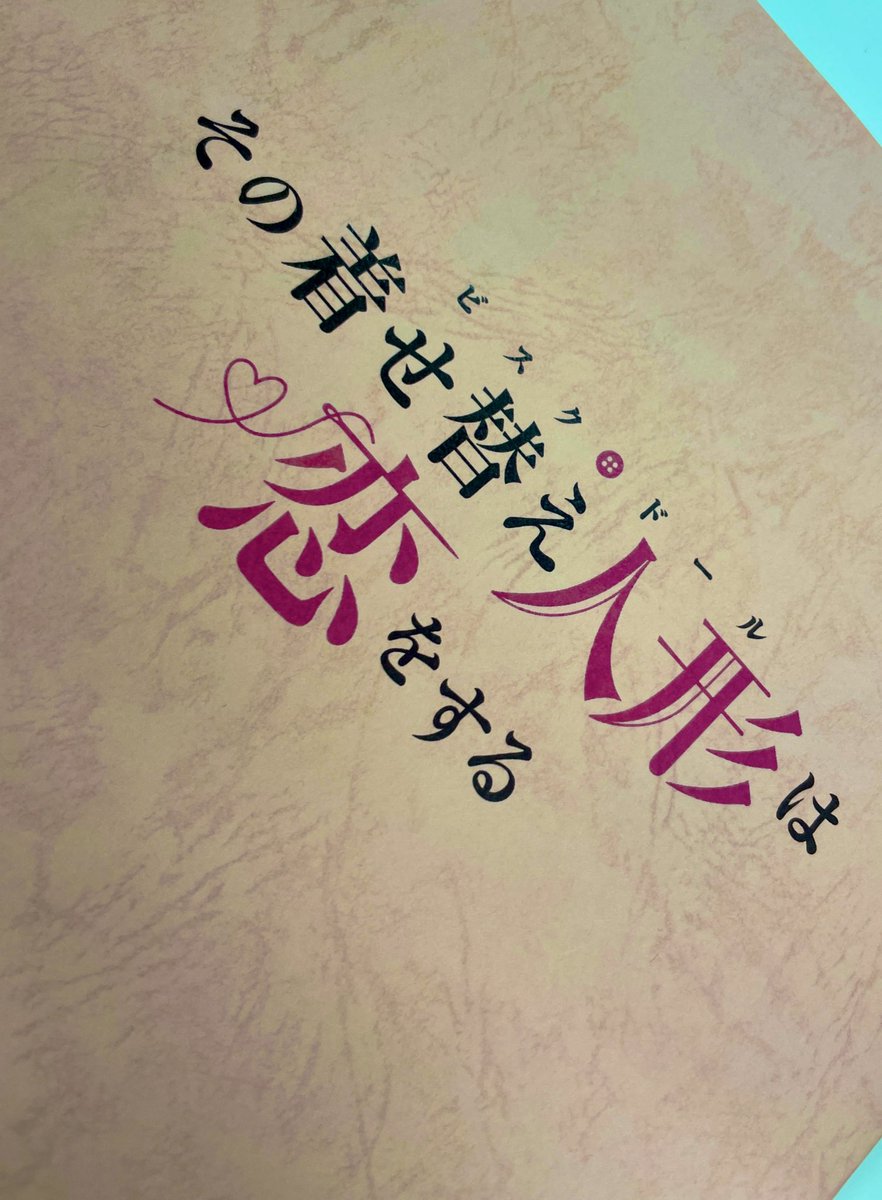 ビスク・ドール
その着せ替え人形は
恋をする